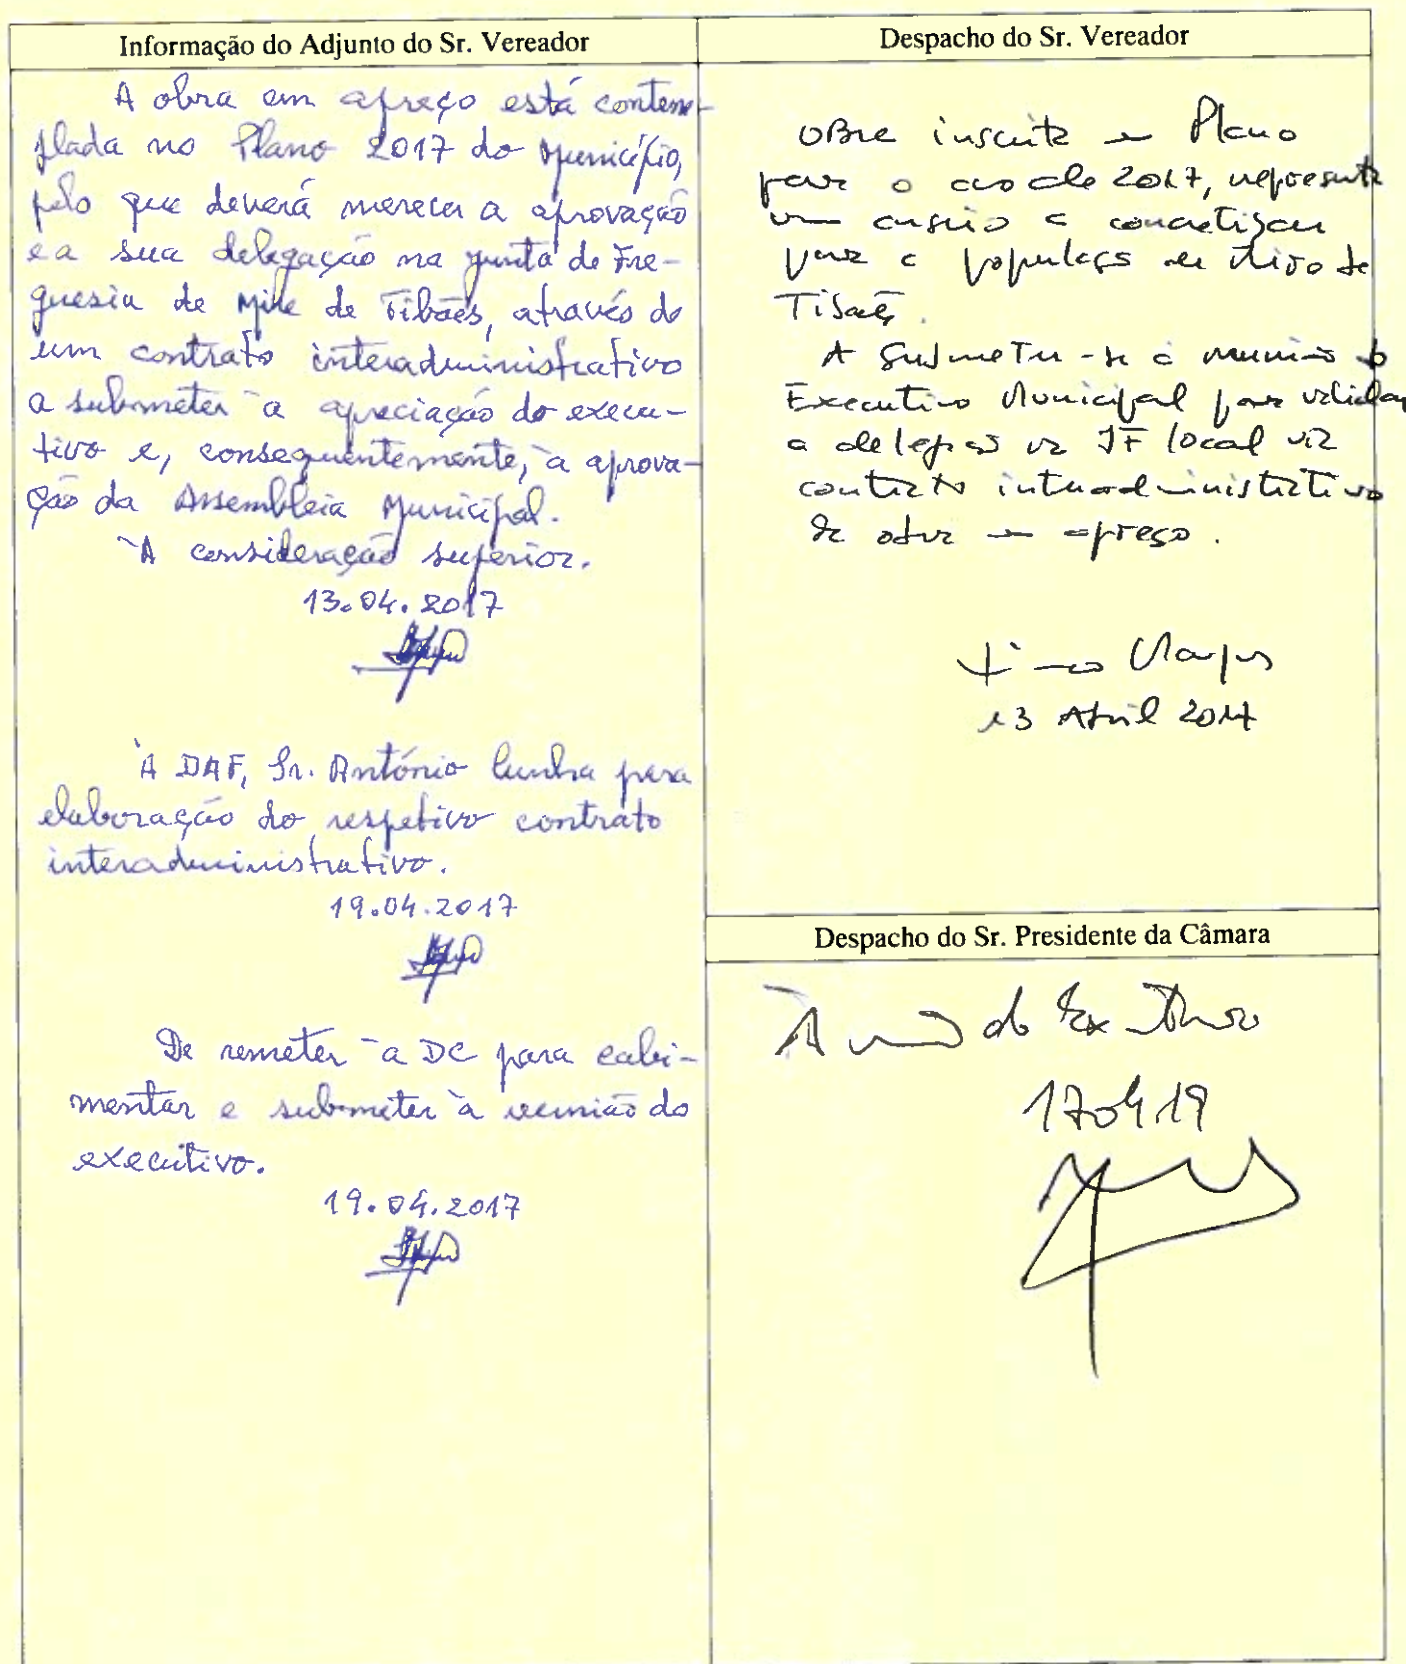 Informação do Adjunto do Sr. Vereador
A obra em apreço está contem-
plada no Plano 2017 do Município,
pelo que deverá merecer a aprovação
e a sua delegação na Junta de Fre-
guesia de Mire de Tibães, através de
um contrato interadministrativo
a submeter à apreciação do execu-
tivo e, consequentemente, à aprova-
ção da Assembleia Municipal.
À consideração superior.
13.04.2017
À DAF, Sr. António Cunha para
elaboração do respetivo contrato
interadministrativo.
19.04.2017
De remeter à DC para cabi-
mentar e submeter à reunião do
executivo.
19.04.2017
Despacho do Sr. Vereador
Obra inscrita em Plano
para o ano de 2017, representa
um anseio a concretizar
para a população de Mire de
Tibães.
A submeter-se à reunião do
Executivo Municipal para validar
a delegação na JF local via
contrato interadministrativo
da obra em apreço.
13 Abril 2017
Despacho do Sr. Presidente da Câmara
À do Executivo
170419